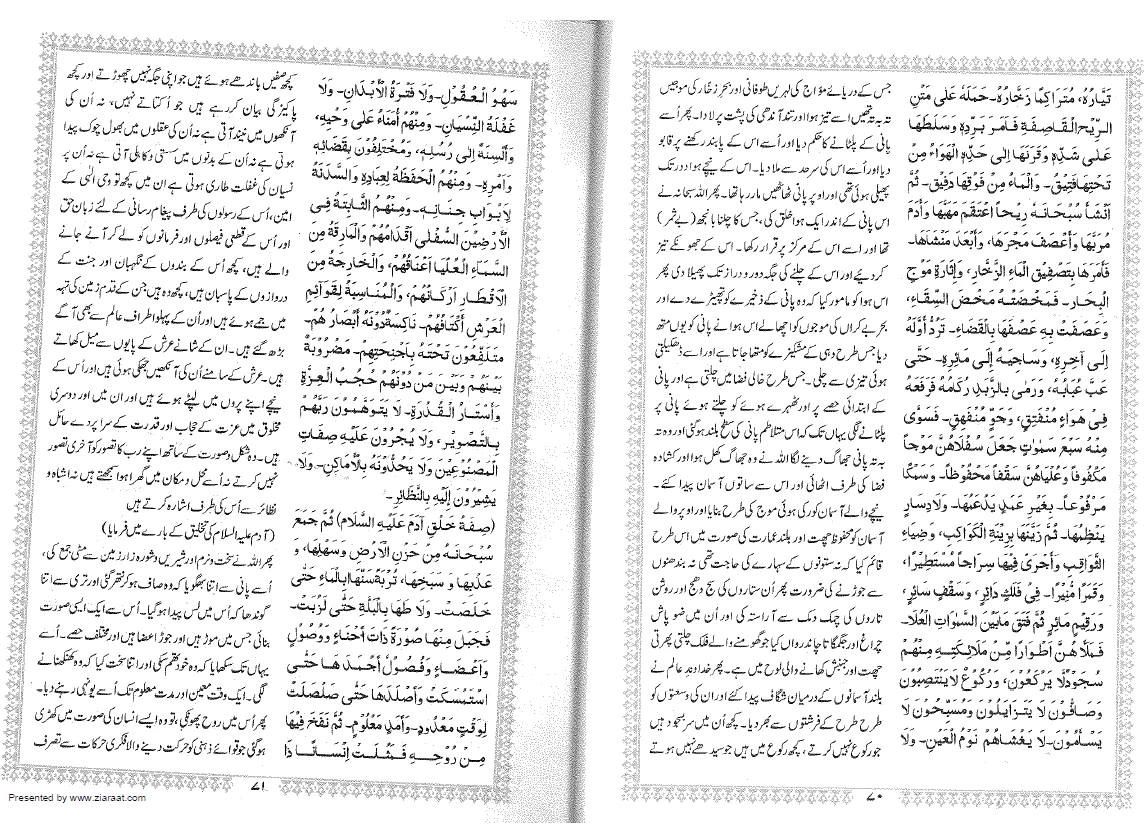 تَيَّارُهُ، مُتَرَاكِمًا زَخَّارُهُ۔ حَمَلَهُ عَلٰى مَتْنِ
الرِّيْحِ الْقَاصِفَةِ فَاَمَرَ بِرَدِّهٖ وَسَلَّطَهَا
عَلٰى شَدِّهٖ وَقَرَنَهَا اِلٰى حَدِّهٖ الْهَوَآءُ مِنْ
تَحْتِهَا فَتِيْقٌ۔ وَالْمَآءُ مِنْ فَوْقِهَا دَفِيْقٌ۔ ثُمَّ
اَنْشَأَ سُبْحَانَهٗ رِيْحاً اعْتَقَمَ مَهَبَّهَا وَاَدَمَ
مُرَبَّهَا وَاَعْصَفَ مَجْرٰهَا، وَاَبْعَدَ مَنْشَاهَا۔
فَاَمَرَهَا بِتَصْفِيْقِ الْمَآءِ الزَّخَّارِ، وَاِثَارَةِ مَوْجِ
الْبِحَارِ۔ فَمَخَضَتْهُ مَخْضَ السِّقَآءِ،
وَعَصَفَتْ بِهٖ عَصْفَهَا بِالْفَضَاءِ۔ تَرُدُّ اَوَّلَهٗ
اِلٰى اٰخِرِهٖ، وَسَاجِيَهٗ اِلٰى مَائِرِهٖ۔ حَتّٰى
عَبَّ عُبَابُهٗ، وَرَمٰى بِالزَّبَدِ رُكَامُهٗ فَرَفَعَهٗ
فِىْ هَوَاءٍ مُنْفَتِقٍ، وَجَوٍّ مُنْفَهِقٍ۔ فَسَوّٰى
مِنْهُ سَبْعَ سَمٰوٰتٍ جَعَلَ سُفْلَاهُنَّ مَوْجاً
مَكْفُوْفاً وَعُلْيَاهُنَّ سَقْفاً مَحْفُوْظاً۔ وَسَمْكًا
مَرْفُوْعاً۔ بِغَيْرِ عَمَدٍ يَدْعَمُهَا۔ وَلَا دِسَارٍ
يَنْظِمُهَا۔ ثُمَّ زَيَّنَهَا بِزِيْنَةِ الْكَوَاكِبِ، وَضِيَاءِ
الثَّوَاقِبِ وَاَجْرٰى فِيْهَا سِرَاجاً مُّسْتَطِيْرًا،
وَقَمَرًا مُّنِيْرًا۔ فِىْ فَلَكٍ دَائِرٍ، وَسَقْفٍ سَائِرٍ،
وَرَقِيْمٍ مَائِرٍ ثُمَّ فَتَقَ مَابَيْنَ السَّمٰوَاتِ الْعُلَا۔
فَمَلَاَهُنَّ اَطْوَارًا مِّنْ مَلَائِكَتِهٖ مِنْهُمْ
سُجُوْدٌ لَا يَرْكَعُوْنَ، وَرُكُوْعٌ لَا يَنْتَصِبُوْنَ
وَصَافُّوْنَ لَا يَتَزَايَلُوْنَ وَمُسَبِّحُوْنَ لَا
يَسْاَمُوْنَ۔ لَا يَغْشَاهُمْ نَوْمُ الْعَيْنِ۔ وَلَا
جس کے دریائے موّاج کی لہریں طوفانی اور بحرِ زخّار کی موجیں
تہ بہ تہ تھیں اسے تیز ہوا اور تند آندھی کی پشت پر لادا۔ پھر اُسے
پانی کے پلٹانے کا حکم دیا اور اُسے اس کے پابند رکھنے پر قابو
دیا اور اُسے اس کی سرحد سے ملا دیا۔ اس کے نیچے ہوا دور تک
پھیلی ہوئی تھی اور اوپر پانی ٹھاٹھیں مار رہا تھا۔ پھر اللہ سبحانہ نے
اس پانی کے اندر ایک ہوا خلق کی، جس کا چلنا بانجھ (بے ثمر)
تھا اور اسے اس کے مرکز پر قرار رکھا۔ اس کے جھونکے تیز
کر دیئے اور اس کے چلنے کی جگہ دور و دراز تک پھیلا دی پھر
اس ہوا کو مامور کیا کہ وہ پانی کے ذخیرے کو تھپیڑے دے اور
بحرِ بے کراں کی موجوں کو اچھالے اس ہوا نے پانی کو یوں متھ
دیا جس طرح دہی کے مشکیزے کو متھا جاتا ہے اور اسے دھکیلتی
ہوئی تیزی سے چلی۔ جس طرح خالی فضا میں چلتی ہے اور پانی
کے ابتدائی حصے پر اور ٹھہرے ہوئے کو چلتے ہوئے پانی پر
پلٹانے لگی یہاں تک کہ اس متلاطم پانی کی سطح بلند ہوگئی اور وہ تہ
بہ تہ پانی جھاگ دینے لگا اللہ نے وہ جھاگ کھلی ہوا اور کشادہ
فضا کی طرف اٹھائی اور اس سے ساتوں آسمان پیدا کئے۔
نیچے والے آسمان کو رکی ہوئی موج کی طرح بنایا اور اوپر والے
آسمان کو محفوظ چھت اور بلند عمارت کی صورت میں اس طرح
قائم کیا کہ نہ ستونوں کے سہارے کی حاجت تھی نہ بندھنوں
سے جوڑنے کی ضرورت پھر اُن ستاروں کی سج دھج اور روشن
تاروں کی چمک دمک سے آراستہ کی اور اُن میں ضو پاش
چراغ اور جگمگاتا چاند رواں کیا جو گھومنے والے فلک چلتی پھرتی
چھت اور جنبش کھانے والی لوح میں ہے۔ پھر خداوندِ عالم نے
بلند آسمانوں کے درمیان شگاف پیدا کئے اور ان کی وسعتوں کو
طرح طرح کے فرشتوں سے بھر دیا۔ کچھ اُن میں سربسجود ہیں
جو رکوع نہیں کرتے، کچھ رکوع میں ہیں جو سیدھے نہیں ہوتے
۷۰
سَهْوُ الْعُقُوْلِ۔ وَلَا فَتْرَةُ الْاَبْدَانِ۔ وَلَا
غَفْلَةُ النِّسْيَانِ۔ وَمِنْهُمْ اُمَنَاءُ عَلٰى وَحْيِهٖ،
وَاَلْسِنَةٌ اِلٰى رُسُلِهٖ، وَمُخْتَلِفُوْنَ بِقَضَائِهٖ
وَاَمْرِهٖ۔ وَمِنْهُمُ الْحَفَظَةُ لِعِبَادِهٖ وَالسَّدَنَةُ
لِاَبْوَابِ جِنَانِهٖ۔ وَمِنْهُمُ الثَّابِتَةُ فِى
الْاَرْضِيْنَ السُّفْلٰى اَقْدَامُهُمْ وَالْمَارِقَةُ مِنَ
السَّمَآءِ الْعُلْيَا اَعْنَاقُهُمْ، وَالْخَارِجَةُ مِنَ
الْاَقْطَارِ اَرْكَانُهُمْ، وَالْمُنَاسِبَةُ لِقَوَائِمِ
الْعَرْشِ اَكْتَافُهُمْ۔ نَاكِسَةٌ دُوْنَهٗ اَبْصَارُهُمْ۔
مُتَلَفِّعُوْنَ تَحْتَهٗ بِاَجْنِحَتِهِمْ۔ مَضْرُوْبَةٌ
بَيْنَهُمْ وَبَيْنَ مَنْ دُوْنَهُمْ حُجُبُ الْعِزَّةِ
وَاَسْتَارُ الْقُدْرَةِ۔ لَا يَتَوَهَّمُوْنَ رَبَّهُمْ
بِالتَّصْوِيْرِ، وَلَا يُجْرُوْنَ عَلَيْهِ صِفَاتِ
الْمَصْنُوْعِيْنَ وَلَا يَحُدُّوْنَهٗ بِالْاَمَاكِنِ۔ وَلَا
يُشِيْرُوْنَ اِلَيْهِ بِالنَّظَائِرِ۔
(صِفَةُ خَلْقِ اٰدَمَ عَلَيْهِ السَّلَام) ثُمَّ جَمَعَ
سُبْحَانَهٗ مِنْ حَزْنِ الْاَرْضِ وَسَهْلِهَا، وَ
عَذْبِهَا وَسَبَخِهَا، تُرْبَةً سَنَّهَا بِالْمَاءِ حَتّٰى
خَلَصَتْ۔ وَلَا طَهَا بِالْبَلَّةِ حَتّٰى لَزَبَتْ۔
فَجَبَلَ مِنْهَا صُوْرَةً ذَاتَ اَحْنَاءٍ وَوُصُوْلٍ
وَاَعْضَاءٍ وَفُصُوْلٍ اَجْمَدَهَا حَتّٰى
اسْتَمْسَكَتْ وَاَصْلَدَهَا حَتّٰى صَلْصَلَتْ
لِوَقْتٍ مَعْدُوْدٍ۔ وَاَمَدٍ مَعْلُوْمٍ۔ ثُمَّ نَفَخَ فِيْهَا
مِنْ رُوْحِهٖ فَمَثُلَتْ اِنْسَانًا ذَا
کچھ صفیں باندھے ہوئے ہیں جو اپنی جگہ نہیں چھوڑتے اور کچھ
پاکیزگی بیان کر رہے ہیں جو اُکتاتے نہیں، نہ اُن کی
آنکھوں میں نیند آتی ہے نہ اُن کی عقلوں میں بھول چوک پیدا
ہوتی ہے نہ اُن کے بدنوں میں سستی و کاہلی آتی ہے نہ اُن پر
نسیان کی غفلت طاری ہوتی ہے ان میں کچھ تو وحی الٰہی کے
امین، اُس کے رسولوں کی طرف پیغام رسانی کے لئے زبانِ حق
اور اُس کے قطعی فیصلوں اور فرمانوں کو لے کر آنے جانے
والے ہیں، کچھ اُس کے بندوں کے نگہبان اور جنت کے
دروازوں کے پاسبان ہیں، کچھ وہ ہیں جن کے قدم زمین کی تہہ
میں جمے ہوئے ہیں اور اُن کے پہلو اطراف عالم سے بھی آگے
بڑھ گئے ہیں۔ ان کے شانے عرش کے پایوں سے میل کھاتے
ہیں۔ عرش کے سامنے اُن کی آنکھیں جھکی ہوئی ہیں اور اُس کے
نیچے اپنے پروں میں لپٹے ہوئے ہیں اور ان میں اور دوسری
مخلوق میں عزت کے حجاب اور قدرت کے سراپردے حائل
ہیں۔ وہ شکل و صورت کے ساتھ اپنے رب کا تصور کو آخری تصور
نہیں کرتے نہ اُسے محل و مکان میں گھرا ہوا سمجھتے ہیں نہ اشباہ و
نظائر سے اُس کی طرف اشارہ کرتے ہیں
(آدم علیہ السلام کی تخلیق کے بارے میں فرمایا)
پھر اللہ نے سخت و نرم اور شیریں و شورہ زار زمین سے مٹی جمع کی،
اُسے پانی سے اِتنا بھگویا کہ وہ صاف ہو کر نتھر گئی اور تری سے اتنا
گوندھا کہ اُس میں لس پیدا ہو گیا۔ اُس سے ایک ایسی صورت
بنائی جس میں موڑ ہیں اور جوڑ اعضا ہیں اور مختلف حصے۔ اُسے
یہاں تک سکھایا کہ وہ خود تھم سکی اور اتنا سخت کیا کہ وہ کھنکھنانے
لگی۔ ایک وقت معین اور مدت معلوم تک اُسے یونہی رہنے دیا۔
پھر اُس میں روح پھونکی، تو وہ ایسے انسان کی صورت میں کھڑی
ہو گئی جو قوائے ذہنی کو حرکت دینے والا فکری حرکات سے تصرف
۷۱
Presented by www.ziaraat.com